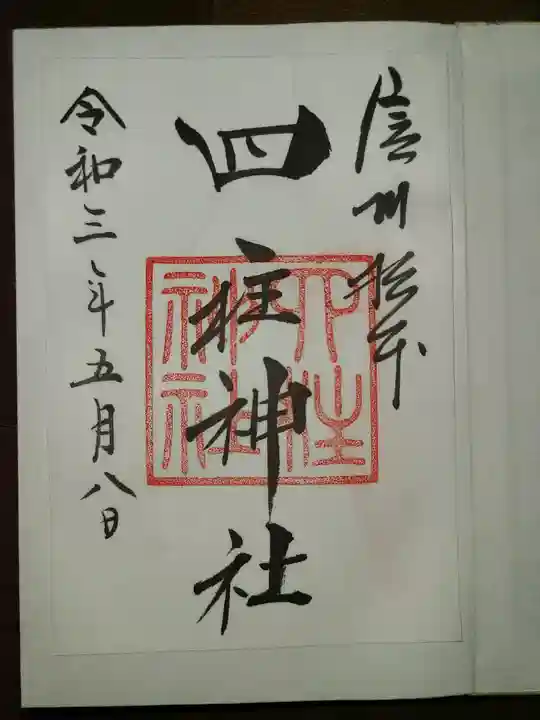 信州松本
四柱神社
令和三年五月八日
四柱
神社